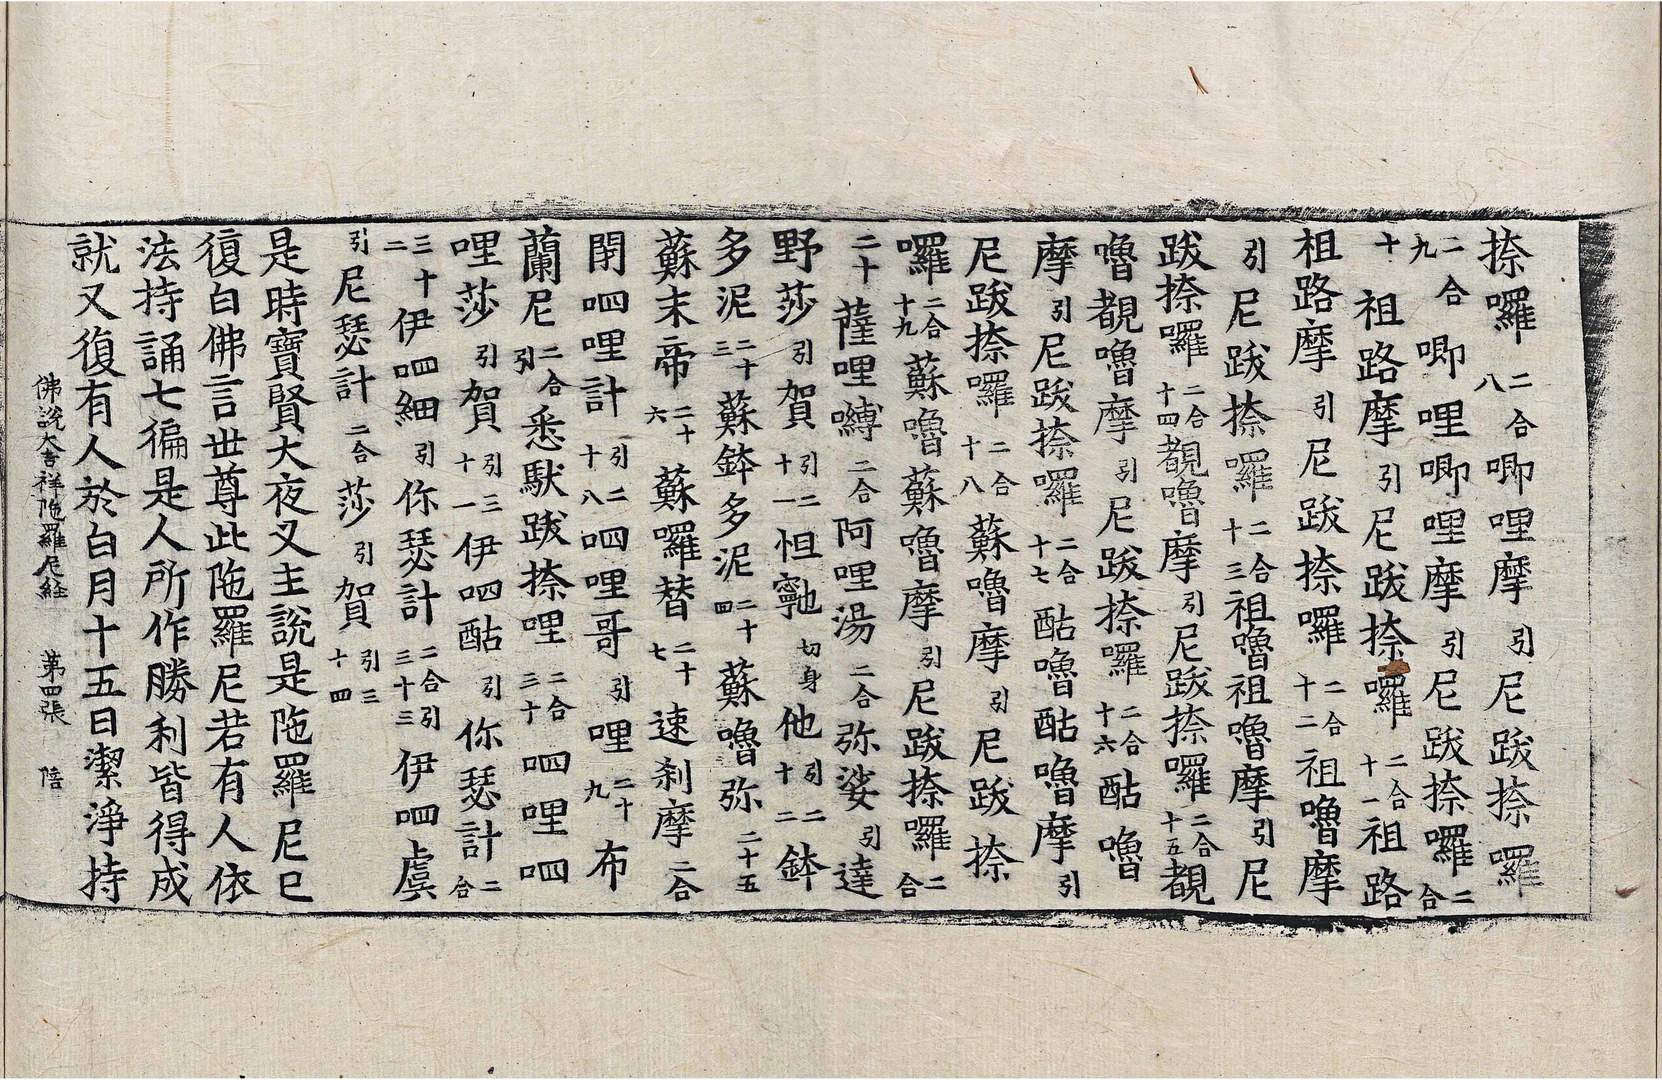 捺囉二合八唧哩摩引尼跋捺囉
二合九唧哩唧哩摩引尼跋捺囉二合
十祖路摩引尼跋捺囉二合十一祖路
祖路摩引尼跋捺囉二合十二祖嚕摩
引尼跋捺囉二合十三祖嚕祖嚕摩引尼
跋捺囉二合十四覩嚕摩引尼跋捺囉二合十五覩
嚕覩嚕摩引尼跋捺囉二合十六酤嚕
摩引尼跋捺囉二合十七酤嚕酤嚕摩引
尼跋捺囉二合十八蘇嚕摩引尼跋捺
囉二合十九蘇嚕蘇嚕摩引尼跋捺囉二合
二十薩哩嚩二合阿哩湯二合弥娑引達
野莎引賀引二十一怛寧切身他引二十二鉢
多泥二十三蘇鉢多泥二十四蘇嚕弥二十五
蘇末帝二十六蘇囉替二十七速刹摩二合
閉呬哩計引二十八呬哩哥引哩二十九布
蘭尼二合引悉馱跋捺哩二合三十呬哩呬
哩莎引賀引三十一伊呬酤引你瑟計二合
三十二伊呬細引你瑟計二合引三十三伊呬虞
引尼瑟計二合莎引賀引三十四
是時寶賢大夜叉主說是陁羅尼已
復白佛言世尊此陁羅尼若有人依
法持誦七徧是人所作勝利皆得成
就又復有人於白月十五日潔淨持
佛說大吉祥陁羅尼經 第四張 㥉